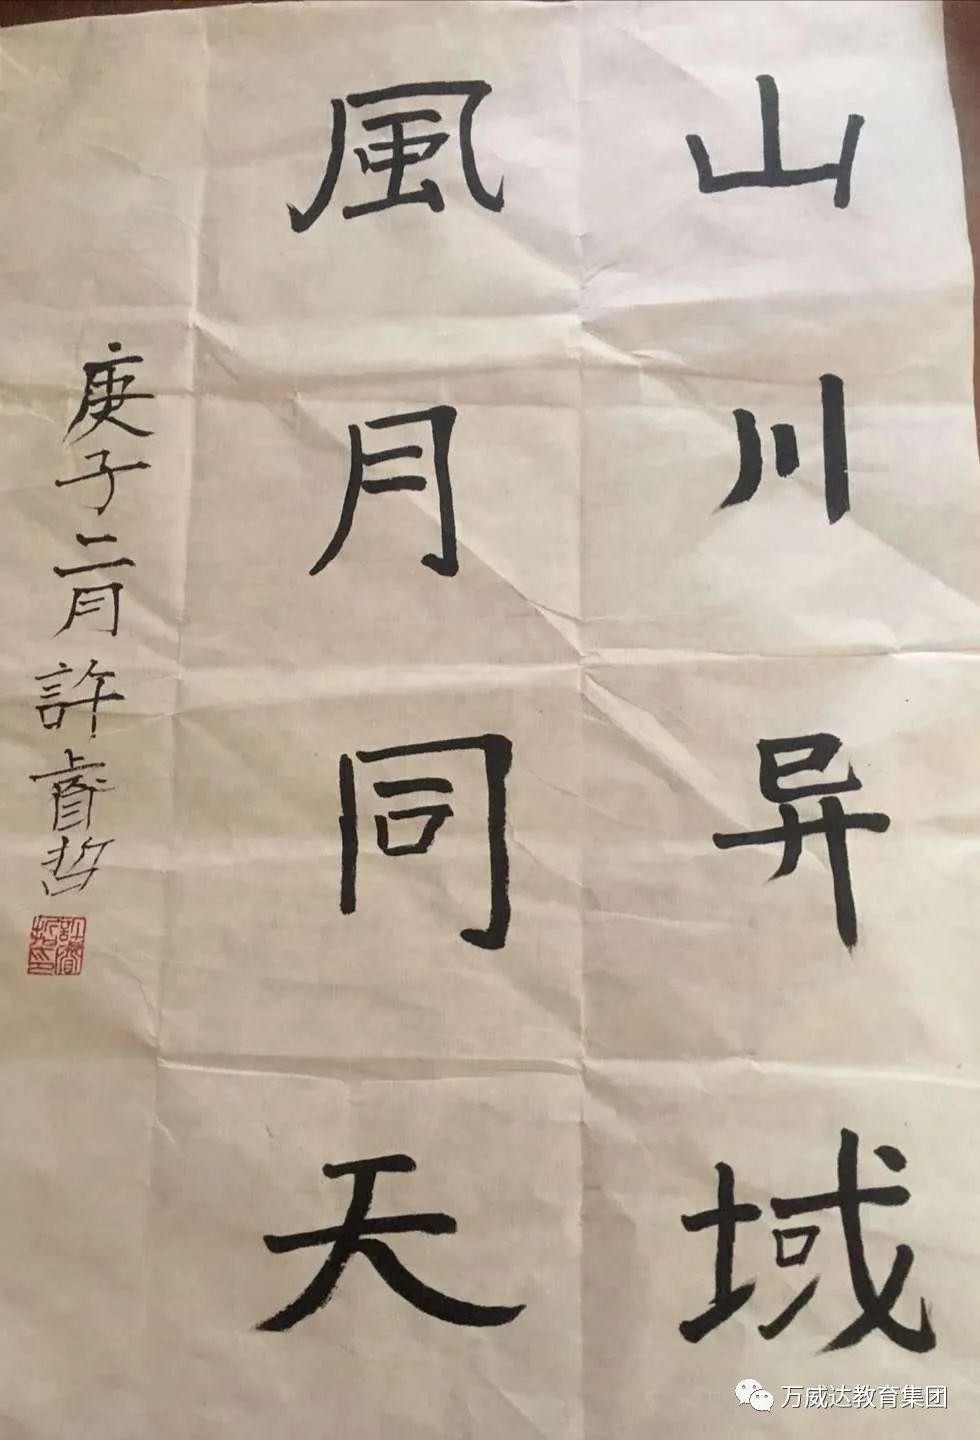 山川异域
風月同天
庚子二月許睿哲
万威达教育集团